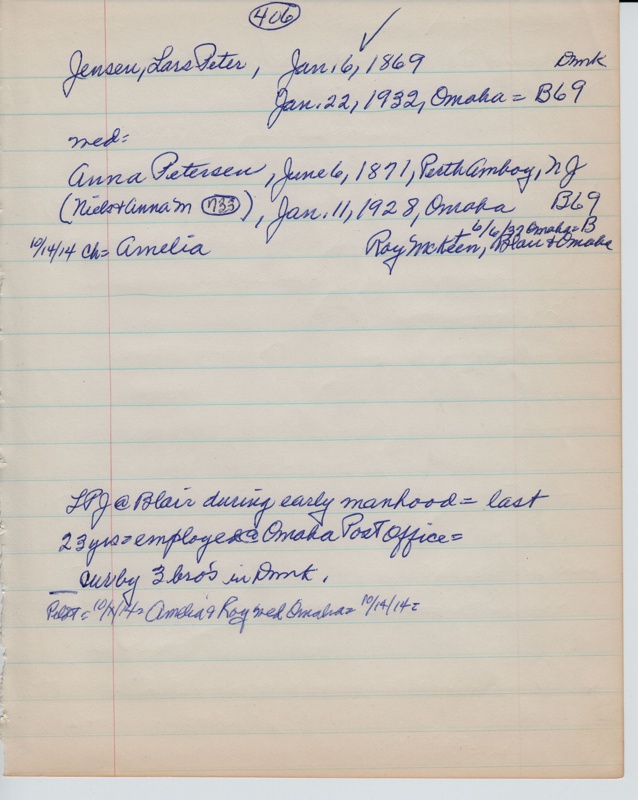 406
Jensen, Lars Peter, Jan. 6, 1869 Dmk
Jan. 22, 1932, Omaha = B69
med=
Anna Petersen, June 6, 1871, Perth Amboy, NJ
(Niels + Anna M 733), Jan. 11, 1928, Omaha B69
6/6/37 Omaha = B
10/14/14 Ch = Amelia Roy McKeen, Blair & Omaha
LPJ @ Blair during early manhood = last
23 yrs = employee @ Omaha Post Office =
sur by 3 bro's in Dmk.
= 10/ /14 = Amelia & Roy med Omaha = 10/14/14 =